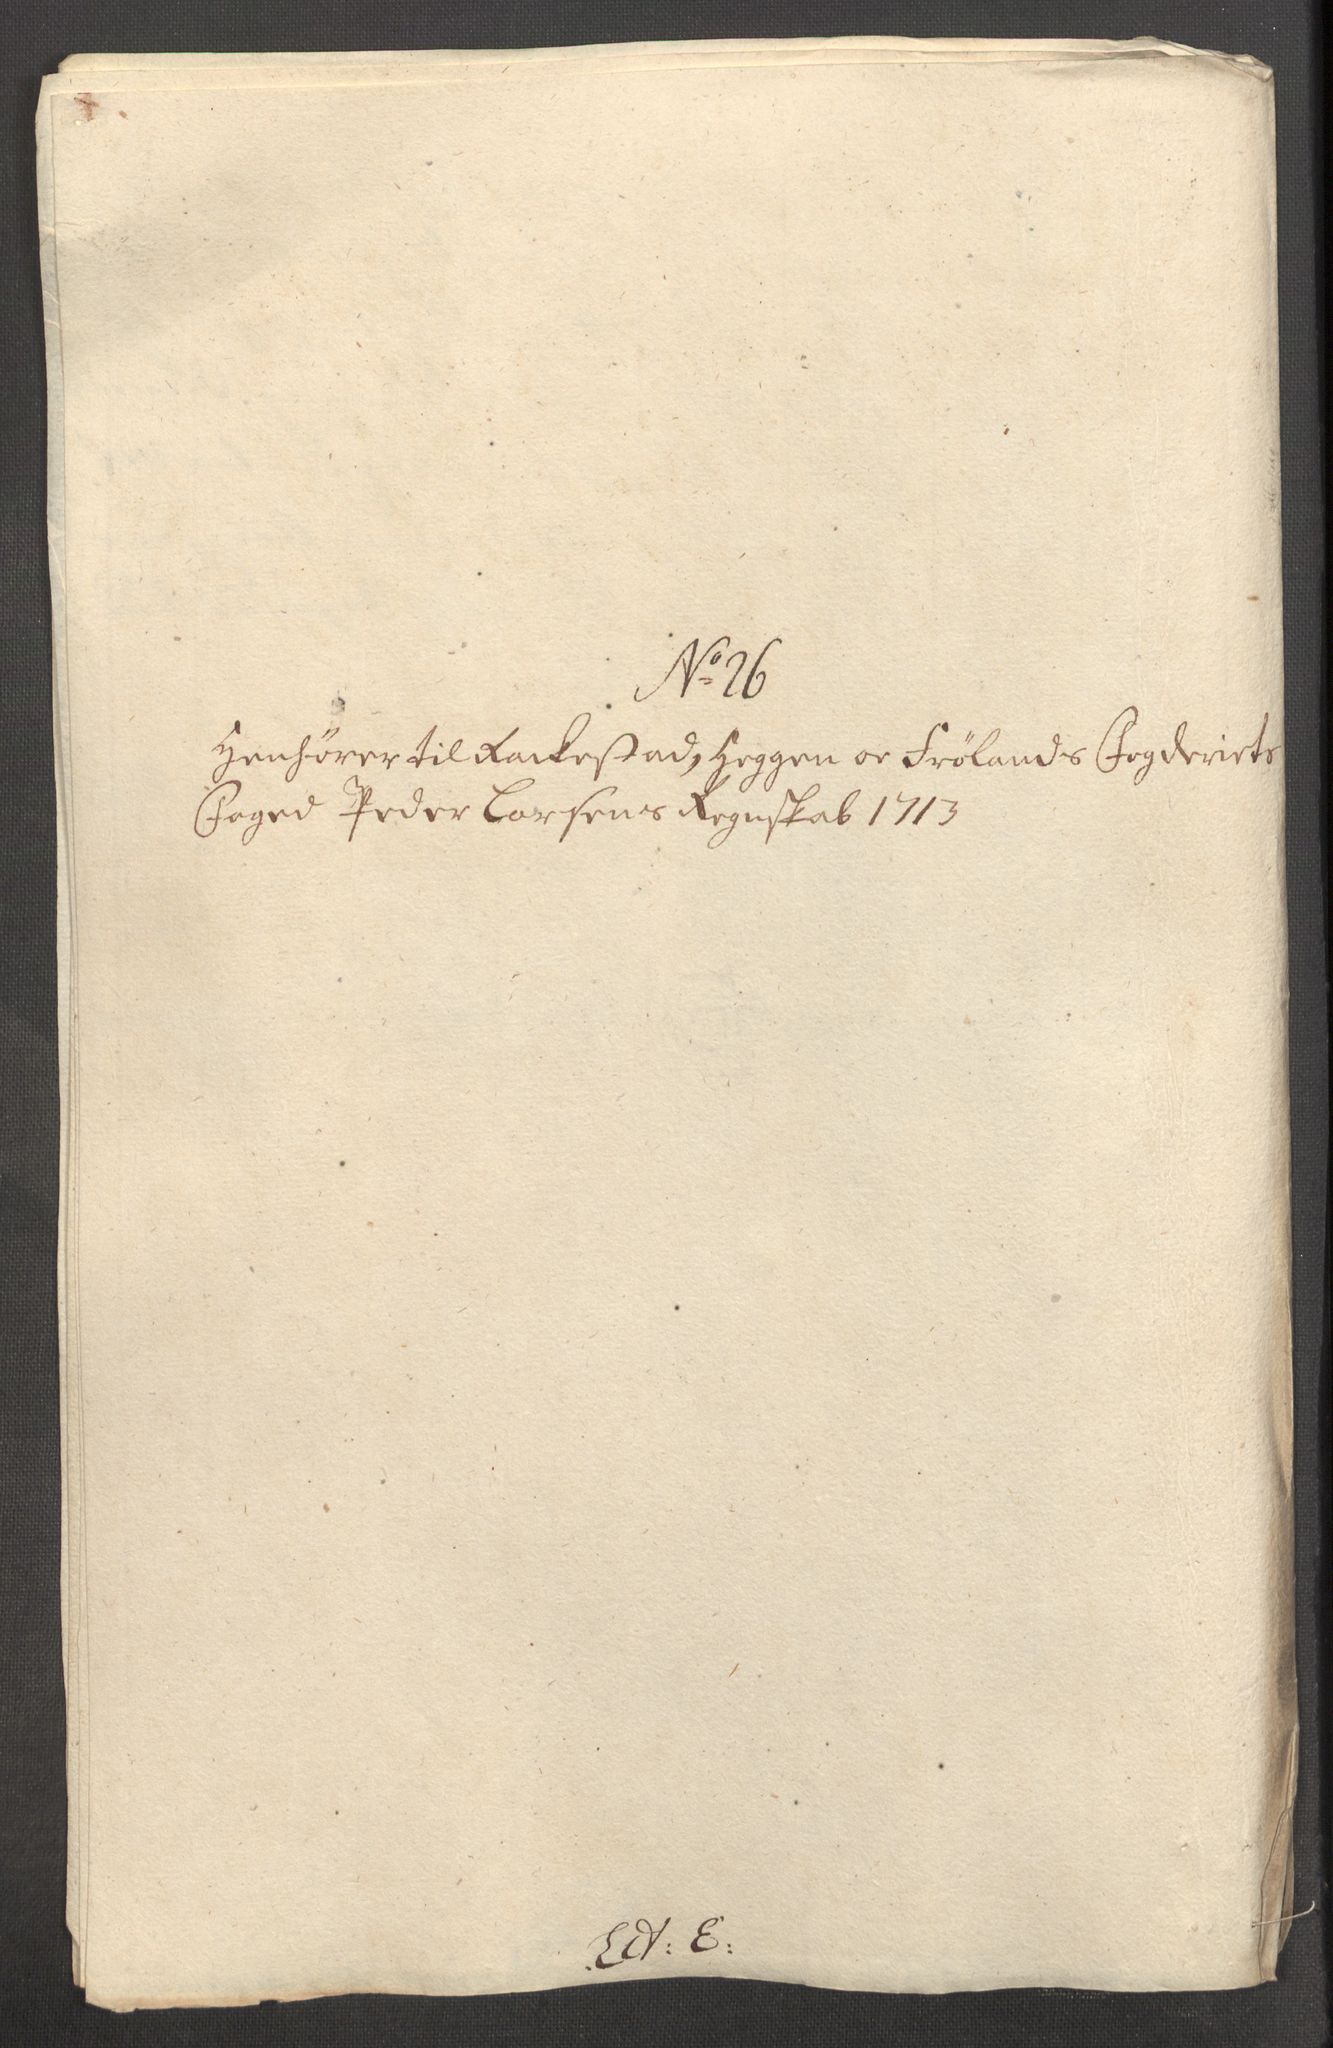 No 26
Henhører til Rackestad, Heggen oc Frølands Fogderiets
Foged Peder Larsens Regnskab 1713
Lit: E: